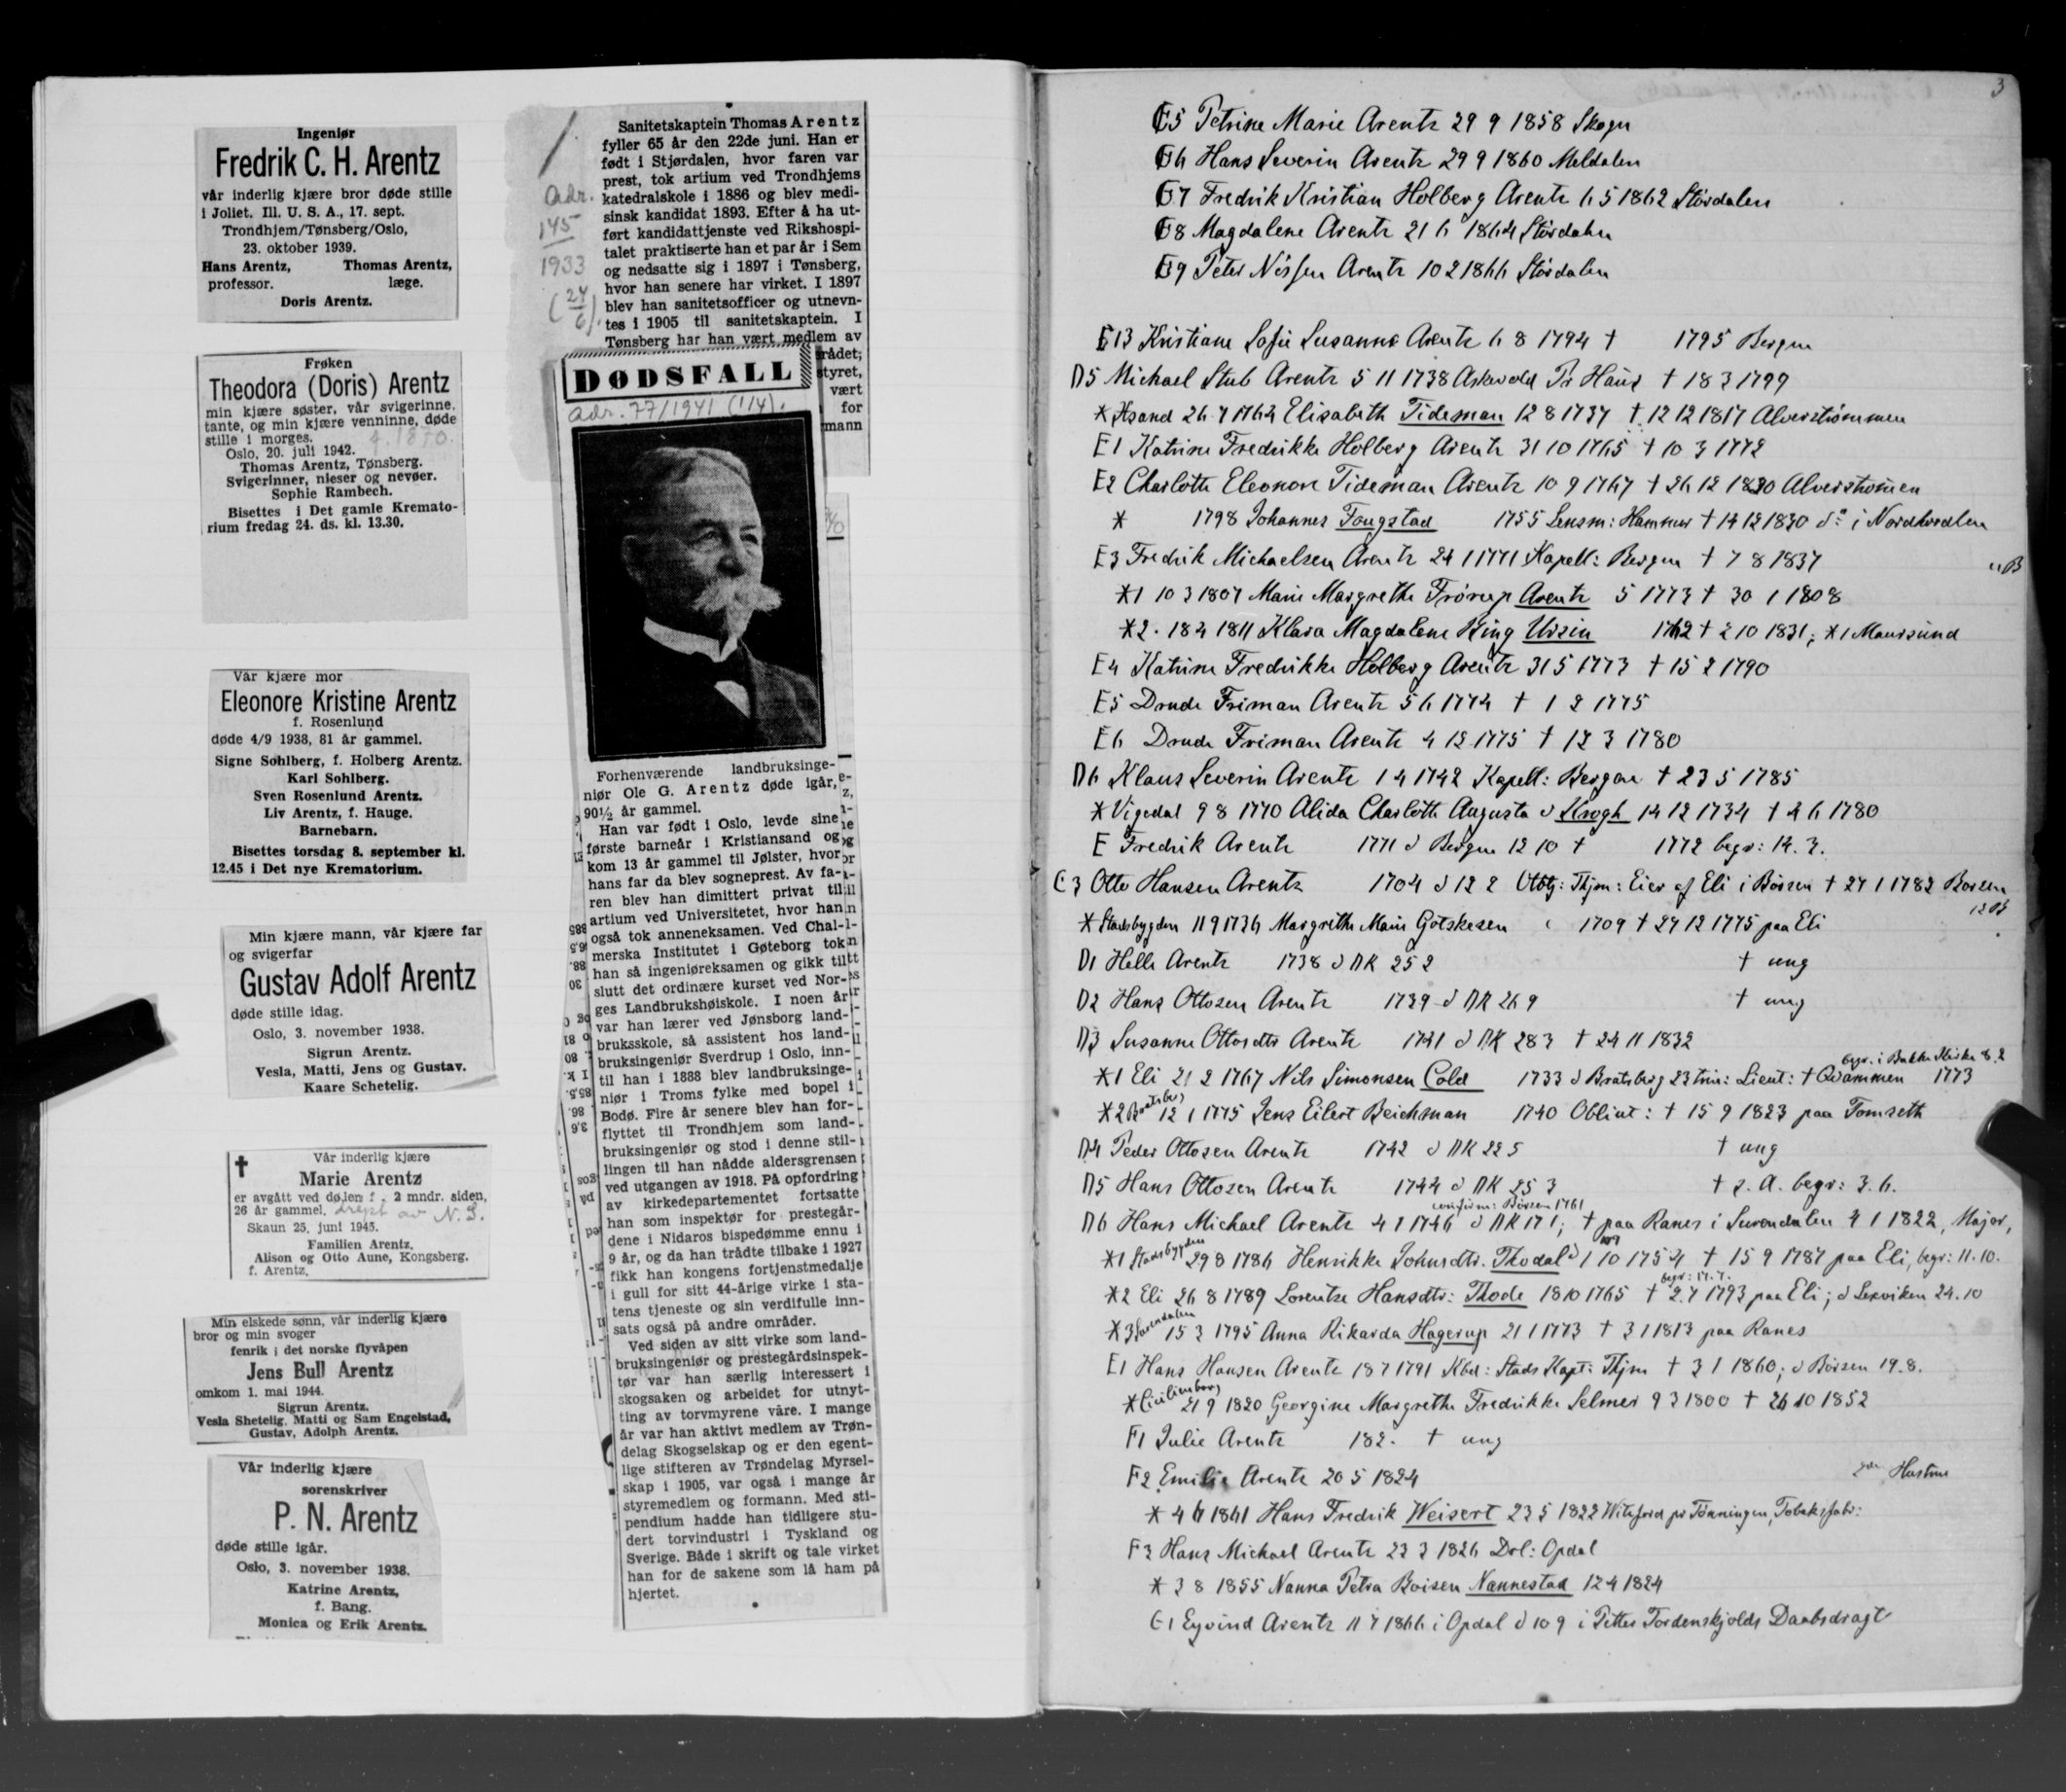 Ingeniør
Fredrik C. H. Arentz
vår inderlig kjære bror døde stille
i Joliet. Ill. U. S. A., 17. sept.
Trondhjem/Tønsberg/Oslo,
23. oktober 1939.
Hans Arentz, Thomas Arentz,
professor. læge.
Doris Arentz.
Frøken
Theodora (Doris) Arentz
min kjære søster, vår svigerinne,
tante, og min kjære venninne, døde
stille i morges. f. 1870.
Oslo, 20. juli 1942.
Thomas Arentz, Tønsberg.
Svigerinner, nieser og nevøer.
Sophie Rambech.
Bisettes i Det gamle Kremato-
rium fredag 24. ds. kl. 13.30.
Vår kjære mor
Eleonore Kristine Arentz
f. Rosenlund
døde 4/9 1938, 81 år gammel.
Signe Sohlberg, f. Holberg Arentz.
Karl Sohlberg.
Sven Rosenlund Arentz.
Liv Arentz, f. Hauge.
Barnebarn.
Bisettes torsdag 8. september kl.
12.45 i Det nye Krematorium.
Min kjære mann, vår kjære far
og svigerfar
Gustav Adolf Arentz
døde stille idag.
Oslo, 3. november 1938.
Sigrun Arentz.
Vesla, Matti, Jens og Gustav.
Kaare Schetelig.
Vår inderlig kjære
Marie Arentz
er avgått ved døden f. 2 mndr. siden,
26 år gammel. drept av N. S.
Skaun 25. juni 1945.
Familien Arentz.
Alison og Otto Aune, Kongsberg.
f. Arentz.
Min elskede sønn, vår inderlig kjære
bror og min svoger
fenrik i det norske flyvåpen
Jens Bull Arentz
omkom 1. mai 1944.
Sigrun Arentz.
Vesla Shetelig. Matti og Sam Engelstad,
Gustav, Adolph Arentz.
Vår inderlig kjære
sorenskriver
P. N. Arentz
døde stille igår.
Oslo, 3. november 1938.
Katrine Arentz,
f. Bang.
Monica og Erik Arentz.
Sanitetskaptein Thomas Arentz
fyller 65 år den 22de juni. Han er
født i Stjørdalen, hvor faren var
prest, tok artium ved Trondhjems
katedralskole i 1886 og blev medi-
sinsk kandidat 1893. Efter å ha ut-
ført kandidattjenste ved Rikshospi-
talet praktiserte han et par år i Sem
og nedsatte sig i 1897 i Tønsberg,
hvor han senere har virket. I 1897
blev han sanitetsofficer og utnevn-
tes i 1905 til sanitetskaptein. I
Tønsberg har han vært medlem av
rådet;
styret,
vært
for
mann
adr.
145
1933
(24/6).
DØDSFALL
adr. 77/1941 (1/4).
Forhenværende landbruksinge-
niør Ole G. Arentz døde igår,
90½ år gammel.
Han var født i Oslo, levde sine
første barneår i Kristiansand og
kom 13 år gammel til Jølster, hvor
hans far da blev sogneprest. Av fa-
ren blev han dimittert privat til
artium ved Universitetet, hvor han
også tok anneneksamen. Ved Chal-
merska Institutet i Gøteborg tok
han så ingeniøreksamen og gikk til
slutt det ordinære kurset ved Nor-
ges Landbrukshøiskole. I noen år
var han lærer ved Jønsborg land-
bruksskole, så assistent hos land-
bruksingeniør Sverdrup i Oslo, inn-
til han i 1888 blev landbruksinge-
niør i Troms fylke med bopel i
Bodø. Fire år senere blev han for-
flyttet til Trondhjem som land-
bruksingeniør og stod i denne stil-
lingen til han nådde aldersgrensen
ved utgangen av 1918. På opfordring
av kirkedepartementet fortsatte
han som inspektør for prestegår-
dene i Nidaros bispedømme ennu i
9 år, og da han trådte tilbake i 1927
fikk han kongens fortjenstmedalje
i gull for sitt 44-årige virke i sta-
tens tjeneste og sin verdifulle inn-
sats også på andre områder.
Ved siden av sitt virke som land-
bruksingeniør og prestegårdsinspek-
tør var han særlig interessert i
skogsaken og arbeidet for utnyt-
ting av torvmyrene våre. I mange
år var han aktivt medlem av Trøn-
delag Skogselskap og er den egent-
lige stifteren av Trøndelag Myrsel-
skap i 1905, var også i mange år
styremedlem og formann. Med sti-
pendium hadde han tidligere stu-
dert torvindustri i Tyskland og
Sverige. Både i skrift og tale virket
han for de sakene som lå ham på
hjertet.
3
5 Petrine Marie Arentz 29 9 1858 Skogn
6 Hans Severin Arentz 29 9 1860 Meldalen
7 Fredrik Kristian Holberg Arentz 6 5 1862 Stördalen
8 Magdalene Arentz 21 6 1864 Stördalen
9 Peter Nissen Arentz 10 2 1866 Stördalen
E13 Kristiane Sofie Susanne Arentz 6 8 1794 † 1795 Bergen
D5 Michael Stub Arentz 5 11 1738 Askevold Pr Haus † 18 3 1799
* Xsand 26 7 1764 Elisabeth Tideman 12 8 1737 † 12 12 1817 Alverströmmen
E1 Katrine Fredrikke Holberg Arentz 31 10 1765 † 10 3 1772
E2 Charlotte Eleonore Tideman Arentz 10 9 1767 † 26 12 1830 Alverströmen
* 1798 Johannes Fougstad 1755 Lensm: Hammer † 14 12 1830 i Nordhordlen
E3 Fredrik Michaelsen Arentz 24 1 1771 Kapell: Bergen † 7 8 1837
*1 10 3 1807 Marie Margrethe Frörup Arentz 5 1773 † 30 1 1808
*2. 18 4 1811 Klara Magdalene Ring Ursin 1762 † 2 10 1831; *1 Maursund
E4 Katrine Fredrikke Holberg Arentz 31 5 1773 † 15 2 1790
E5 Drude Friman Arentz 5 6 1774 † 1 2 1775
E6 Drude Friman Arentz 4 12 1775 † 12 3 1780
D6 Klaus Severin Arentz 1 4 1742 Kapell: Bergen † 23 5 1785
* Vigedal 9 8 1770 Alida Charlotte Augusta v Krogh 14 12 1734 † 4 6 1780
E Fredrik Arentz 1771 d Bergen 12 10 † 1772 begr: 14. 3.
C3 Otto Hansen Arentz 1704 d 12 2 Obltj: Thjm: Eier af Eli i Börsen † 27 1 1782 Borsen
* Stadsbygden 11 9 1736 Margrethe Marie Götskesen 1709 † 27 12 1775 paa Eli
D1 Helle Arentz 1738 d DK 25 2 † ung
D2 Hans Ottosen Arentz 1739 d DK 26 9 † ung
D3 Susanne Ottosdtr Arentz 1741 d DK 28 3 † 24 11 1832
*1 Eli 21 2 1767 Nils Simonsen Cold 1733 d Bratsberg 23 trin: Lieut: † Qvammen 1773
begr. i Bakke Kirke 8. 2
*2 Bratsberg 12 1 1775 Jens Eilert Beichman 1740 Oblieut: † 15 9 1823 paa Tomseth
D4 Peder Ottosen Arentz 1742 d DK 22 5 † ung
D5 Hans Ottosen Arentz 1744 d DK 25 3 † s. A. begr: 3. 6.
confirm: Börsen 1761
D6 Hans Michael Arentz 4 1 1746 d DK 17 1; † paa Ranes i Surendalen 4 1 1822, Major,
*1 Stadsbygden 29 8 1786 Henrikke Johnsdtr. Thodal 1 10 1754 † 15 9 1787 paa Eli, begr: 11. 10.
*2 Eli 26 8 1789 Lorentze Hansdtr: Thode 18 10 1765 † 2. 7 1793 paa Eli; d Lexviken 24. 10
*3 Surendalen 15 3 1795 Anna Rikarda Hagerup 21 1 1773 † 3 1 1813 paa Ranes
E1 Hans Hansen Arentz 18 7 1791 Kbd: Stads Kapt: Thjm † 3 1 1860; d Börsen 19. 8.
* Civilimborg 21 9 1820 Georgine Margrethe Fredrikke Selmer 9 3 1800 † 26 10 1852
F1 Julie Arentz 182. † ung
F2 Emilie Arentz 20 5 1824
* 4 6 1861 Hans Fredrik Weisert 23 5 1822 Witsford pr Tönningen, Tobaksfabr:
F3 Hans Michael Arentz 23 3 1826 Drl: Opdal
* 3 8 1855 Nanna Petra Boisen Nannestad 12 4 1824
G1 Eyvind Arentz 11 7 1866 i Opdal d 10 9 i Petter Tordenskjolds Daabsdragt